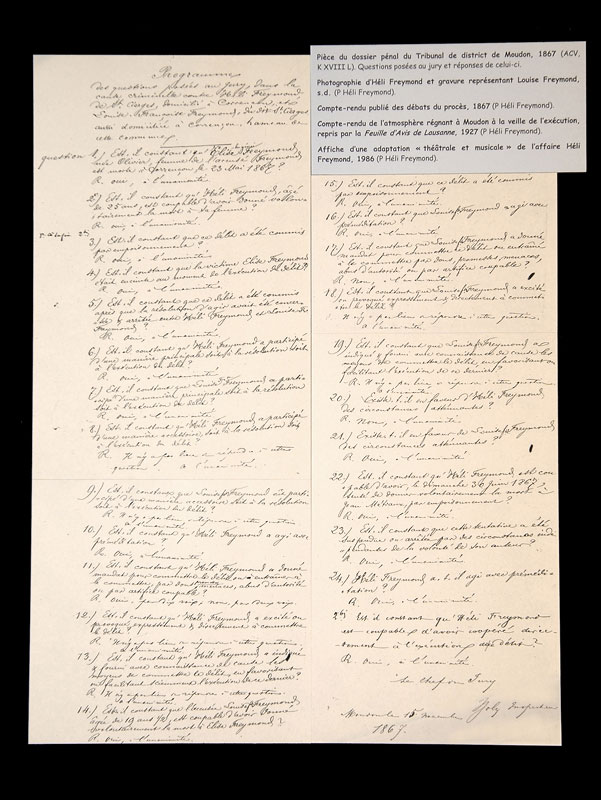 Programme
des questions posées au Jury, dans la
cause criminelle contre Héli Freymond
de St Cierges, domicilié à
Louise Françoise Freymond, du dit St Cierges
aussi domiciliée à Corrençon, hameau de
cette commune.
question 1.) Est-il constant que Elise Freymond
née Olivier, femme de l'accusé Freymond
est morte à Corrençon le 23 Mai 1867?
R. oui, à l'unanimité.
2.) Est-il constant que Héli Freymond, âgé
de 25 ans, est coupable d'avoir donné volon-
tairement la mort à sa femme?
R. oui à l'unanimité.
3.) Est-il constant que ce délit a été commis
par empoisonnement?
R. oui, à l'unanimité.
4.) Est-il constant que la victime Elise Freymond
était enceinte au moment de l'exécution du délit?
R. Oui, à l'unanimité.
5.) Est-il constant que ce délit a été commis
après que la résolution d'agir avait été concer-
tée & arrêtée entre Héli Freymond et Louise
Freymond?
R. oui, à l'unanimité.
6.) Est-il constant que Héli Freymond a participé
d'une manière principale soit à la résolution soit
à l'exécution du délit?
R. oui, à l'unanimité.
7.) Est-il constant que Louise Freymond a parti-
cipé d'une manière principale soit à la résolution
soit à l'exécution du délit?
R. oui, à l'unanimité.
8.) Est-il constant que Héli Freymond a participé
d'une manière accessoire, soit à la résolution soit
à l'exécution du délit?
R. Il n'y a pas lieu de répondre à cette
question. à l'unanimité.
9.) Est-il constant que Louise Freymond ait parti-
cipé d'une manière accessoire soit à la résolution
soit à l'exécution du délit?
R. Il n'y a pas lieu à répondre à cette question
à l'unanimité.
10.) Est-il constant que Héli Freymond a agi avec
préméditation?
R. Oui, à l'unanimité.
11.) Est-il constant que Héli Freymond a donné
mandat pour commettre le délit ou a entraîné à
le commettre, par des menaces, abus d'autorité
ou par artifice coupable?
R. Oui, par dix voix, non, par deux voix.
12.) Est-il constant que Héli Freymond a excité ou
provoqué expressément & directement à commettre
le délit?
R. Il n'y a pas lieu à répondre à cette question
à l'unanimité.
13.) Est-il constant que Héli Freymond a indiqué
& fourni avec connaissance de cause les
moyens de commettre le délit, en favorisant
ou facilitant sciemment l'exécution de ce dernier?
R. Il n'y a pas lieu à répondre à cette question.
à l'unanimité.
14.) Est-il constant que l'accusée Louise Freymond
âgée de 19 ans ½, est coupable d'avoir donné
volontairement la mort à Elise Freymond?
R. Oui, à l'unanimité.
Pièce du dossier pénal du Tribunal de district de Moudon, 1867 (ACV,
K XVIII L). Questions posées au jury et réponses de celui-ci.
Photographie d'Héli Freymond et gravure représentant Louise Freymond,
s.d. (P Héli Freymond).
Compte-rendu publié des débats du procès, 1867 (P Héli Freymond).
Compte-rendu de l'atmosphère régnant à Moudon à la veille de l'exécution,
repris par la Feuille d'Avis de Lausanne, 1927 (P Héli Freymond).
Affiche d'une adaptation « théâtrale et musicale » de l'affaire Héli
Freymond, 1986 (P Héli Freymond).
15.) Est-il constant que ce délit a été commis
par empoisonnement?
R. Oui, à l'unanimité.
16.) Est-il constant que Louise Freymond a agi avec
préméditation?
R. Oui, à l'unanimité.
17.) Est-il constant que Louise Freymond a donné
mandat pour commettre le délit ou entraîné
à le commettre par dons, promesses, menaces,
abus d'autorité ou par artifice coupable?
R. Non, à l'unanimité.
18.) Est-il constant que Louise Freymond a excité
ou provoqué expressément & directement à commet-
tre le délit?
R. Il n'y a pas lieu à répondre à cette question.
à l'unanimité.
19.) Est-il constant que Louise Freymond a
indiqué & fourni avec connaissance de cause les
moyens de commettre le délit, en favorisant ou
facilitant l'exécution de ce dernier?
R. Il n'y a pas lieu à répondre à cette question
à l'unanimité.
20.) Existe-t-il en faveur d'Héli Freymond,
des circonstances atténuantes?
R. Non, à l'unanimité.
21.) Existe-t-il en faveur de Louise Freymond
des circonstances atténuantes?
R. Oui, à l'unanimité.
22.) Est-il constant qu'Héli Freymond, est cou-
pable d'avoir, le dimanche 30 juin 1867,
tenté de donner volontairement la mort à
Jean par empoisonnement?
R. Oui, à l'unanimité.
23.) Est-il constant que cette tentative a été
suspendue ou arrêtée par des circonstances indé-
pendantes de la volonté de son auteur?
R. Oui, à l'unanimité.
24.) Héli Freymond a-t-il agi avec prémédi-
tation?
R. Oui, à l'unanimité.
Est-il constant que Héli Freymond
est coupable d'avoir coopéré direc-
tement à l'exécution du délit?
R. Oui, à l'unanimité.
Le Chef du Jury
Moudon le 15 novembre
1867.